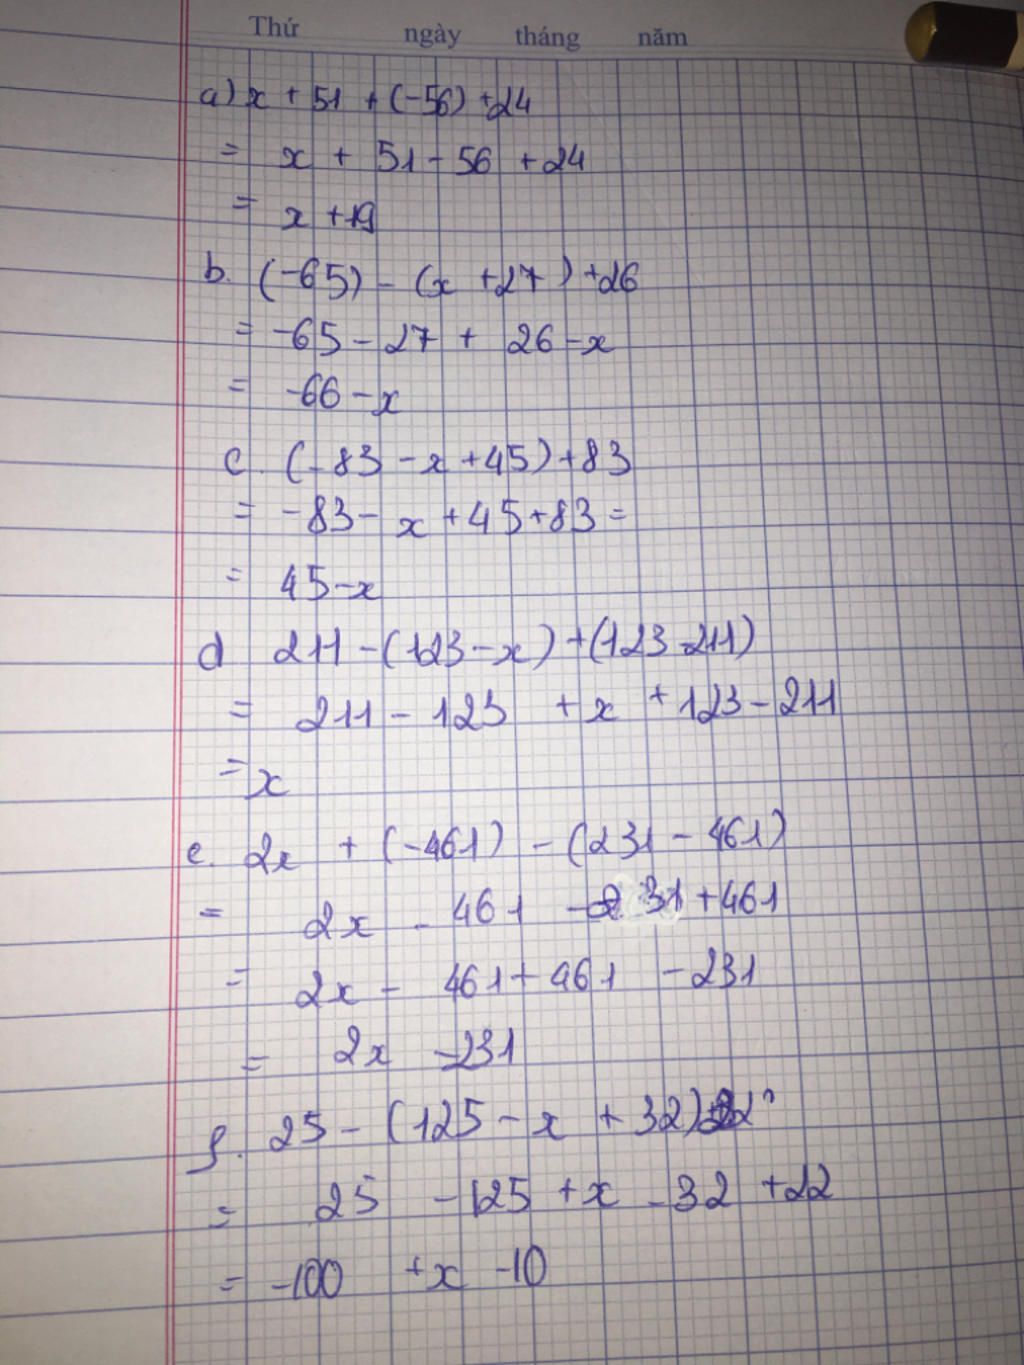 Thứ ngày tháng năm
a) x + 51 + (-56) + 24
= x + 51 - 56 + 24
= x + 19
b. (-65) - (x + 27) + 26
= -65 - 27 + 26 - x
= -66 - x
c. (-83 - x + 45) + 83
= -83 - x + 45 + 83 =
= 45 - x
d 211 - (123 - x) + (123 - 211)
= 211 - 123 + x + 123 - 211
= x
e. 2x + (-461) - (231 - 461)
= 2x - 461 - 231 + 461
= 2x - 461 + 461 - 231
= 2x - 231
f. 25 - (125 - x + 32)
= 25 - 125 + x - 32 + 22
= -100 + x - 10